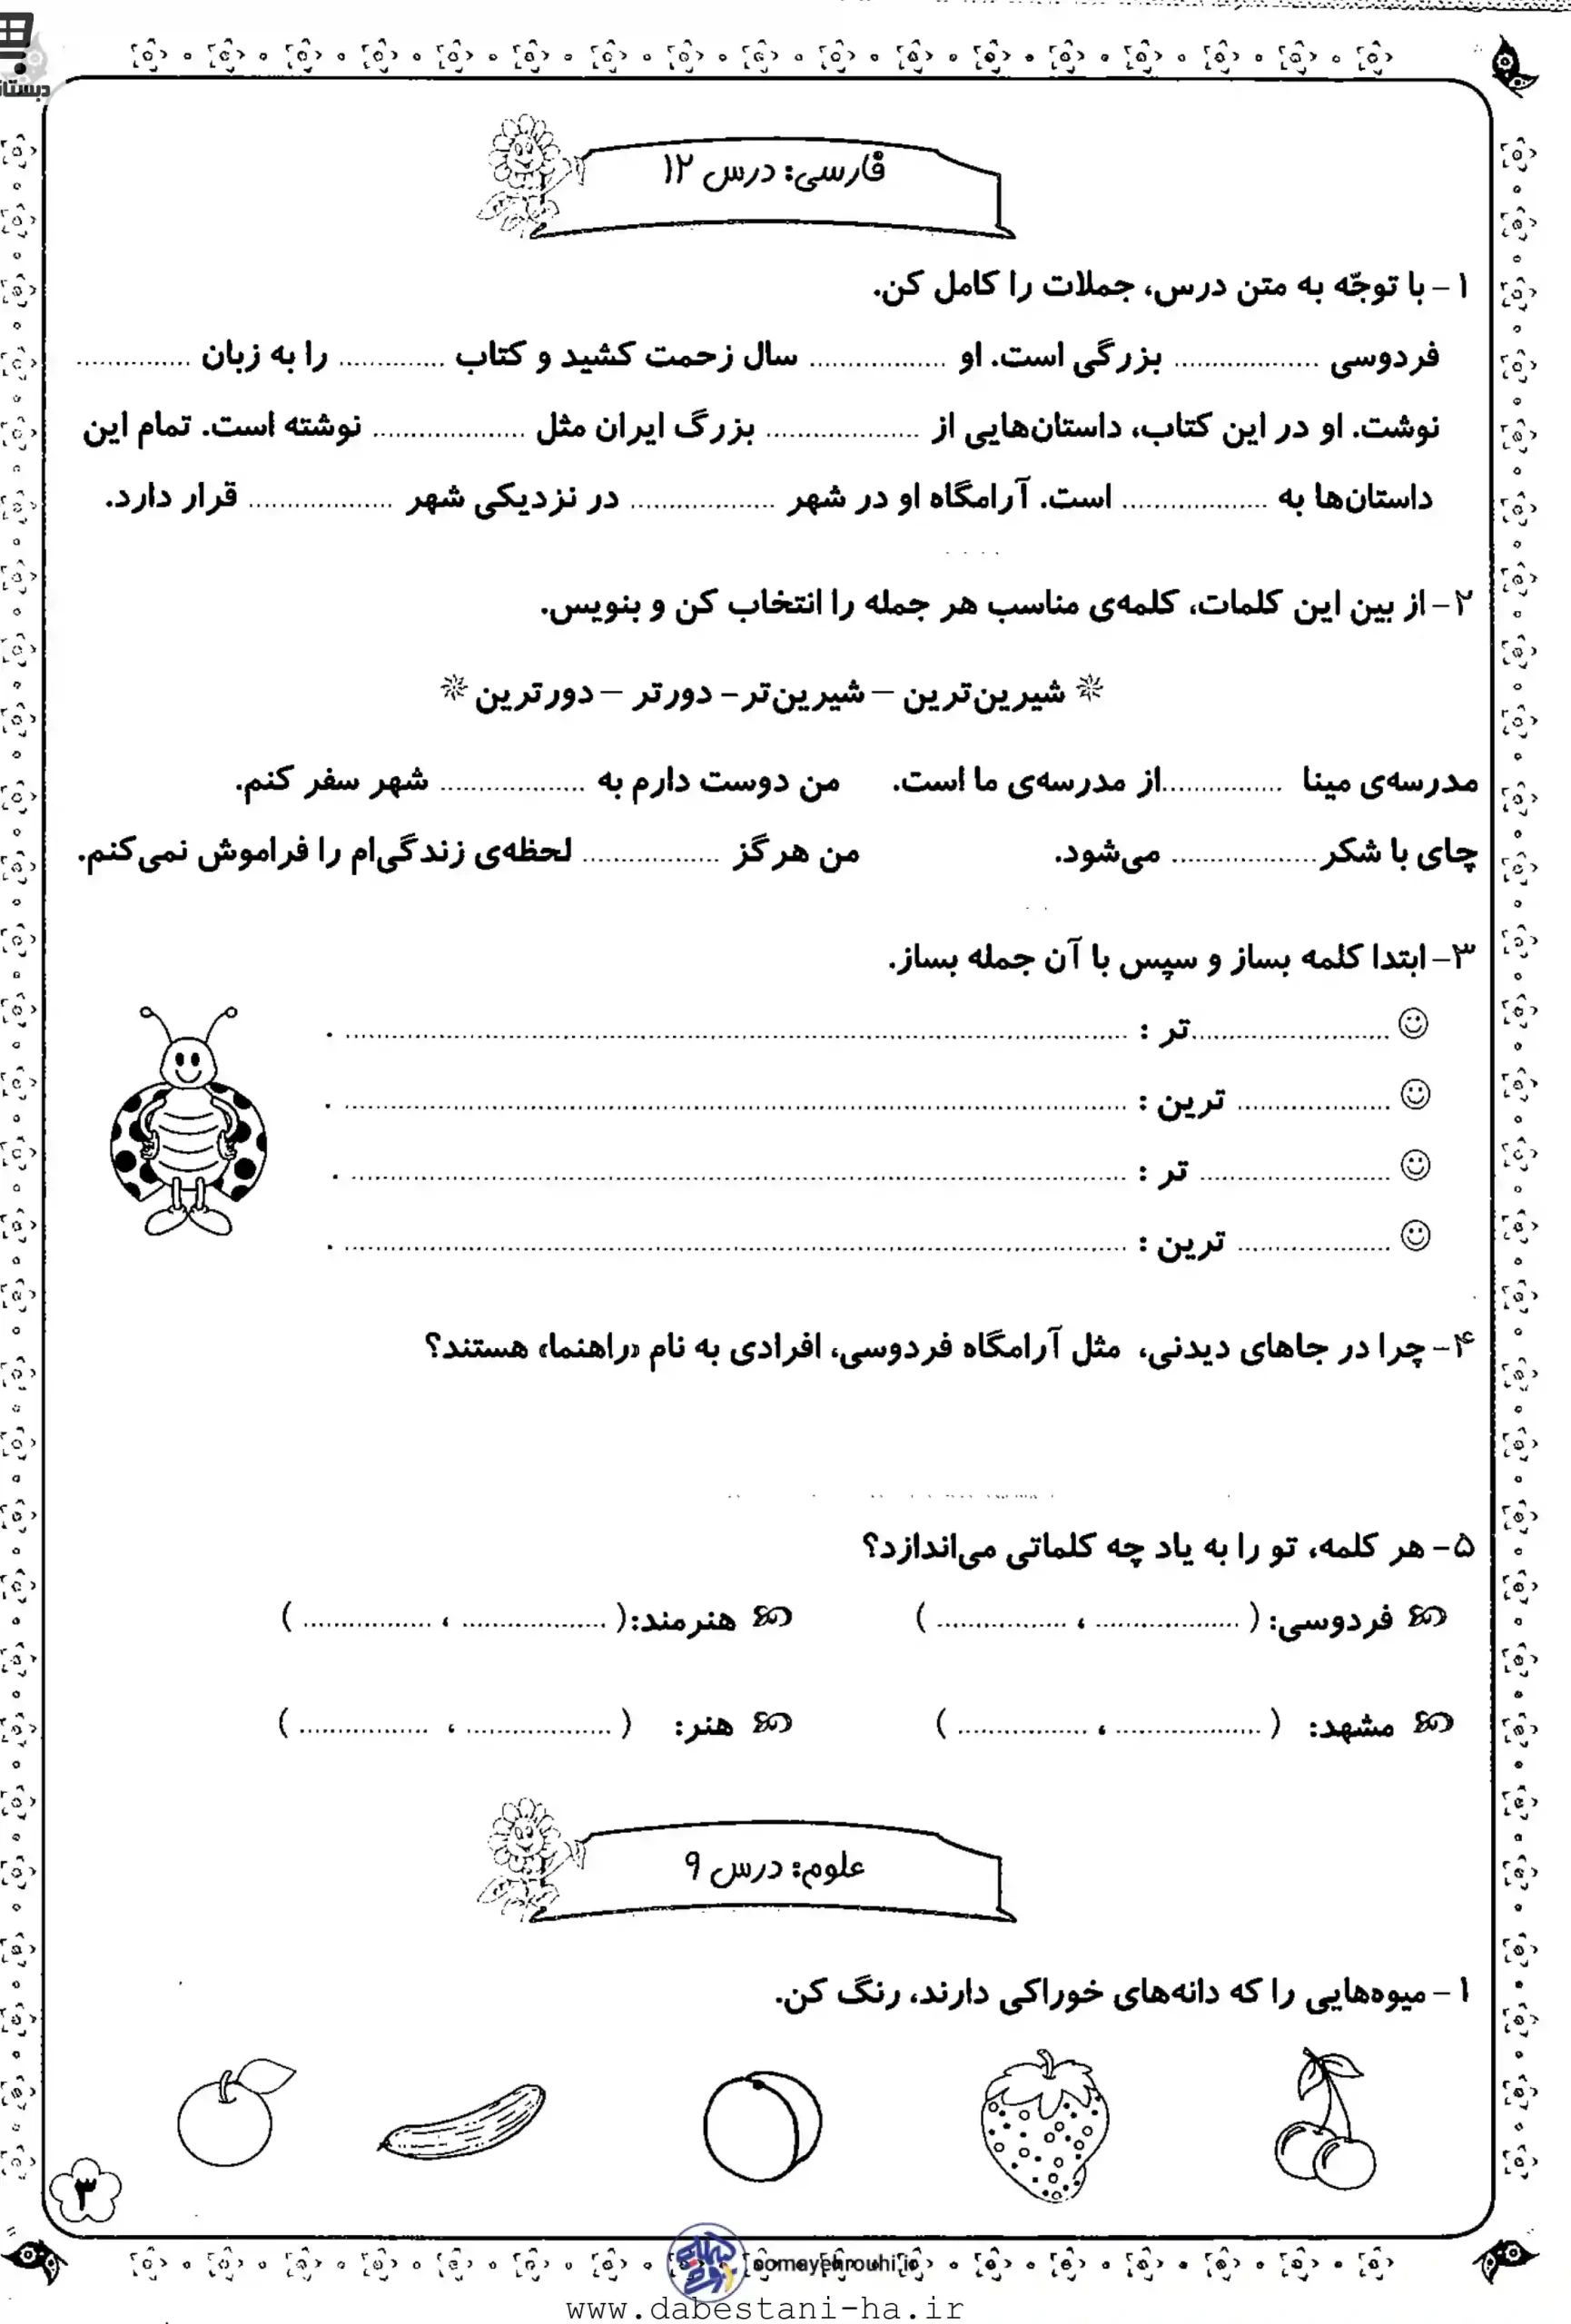 دبستا
فارسی: درس ۱۲
۱- با توجّه به متن درس، جملات را کامل کن.
فردوسی ................... بزرگی است. او .................. سال زحمت کشید و کتاب .............. را به زبان ...............
نوشت. او در این کتاب، داستان‌هایی از .................... بزرگ ایران مثل .................... نوشته است. تمام این
داستان‌ها به ................... است. آرامگاه او در شهر ................... در نزدیکی شهر ................... قرار دارد.
۲- از بین این کلمات، کلمه‌ی مناسب هر جمله را انتخاب کن و بنویس.
شیرین‌ترین – شیرین‌تر – دورتر – دورترین
مدرسه‌ی مینا ................از مدرسه‌ی ما است. من دوست دارم به ................... شهر سفر کنم.
چای با شکر................... می‌شود. من هرگز .................. لحظه‌ی زندگی‌ام را فراموش نمی‌کنم.
۳- ابتدا کلمه بساز و سپس با آن جمله بساز.
..........................تر : ........................................................................................ .
.................... ترین : ........................................................................................ .
......................... تر : ........................................................................................ .
.................... ترین : ........................................................................................ .
۴- چرا در جاهای دیدنی، مثل آرامگاه فردوسی، افرادی به نام «راهنما» هستند؟
۵- هر کلمه، تو را به یاد چه کلماتی می‌اندازد؟
فردوسی: ( ................... ، ................. ) هنرمند:( ................... ، ................. )
مشهد: ( ................... ، ................. ) هنر: ( ................... ، ................. )
علوم: درس ۹
۱- میوه‌هایی را که دانه‌های خوراکی دارند، رنگ کن.
۳
somayehrouhi.ir
www.dabestani-ha.ir